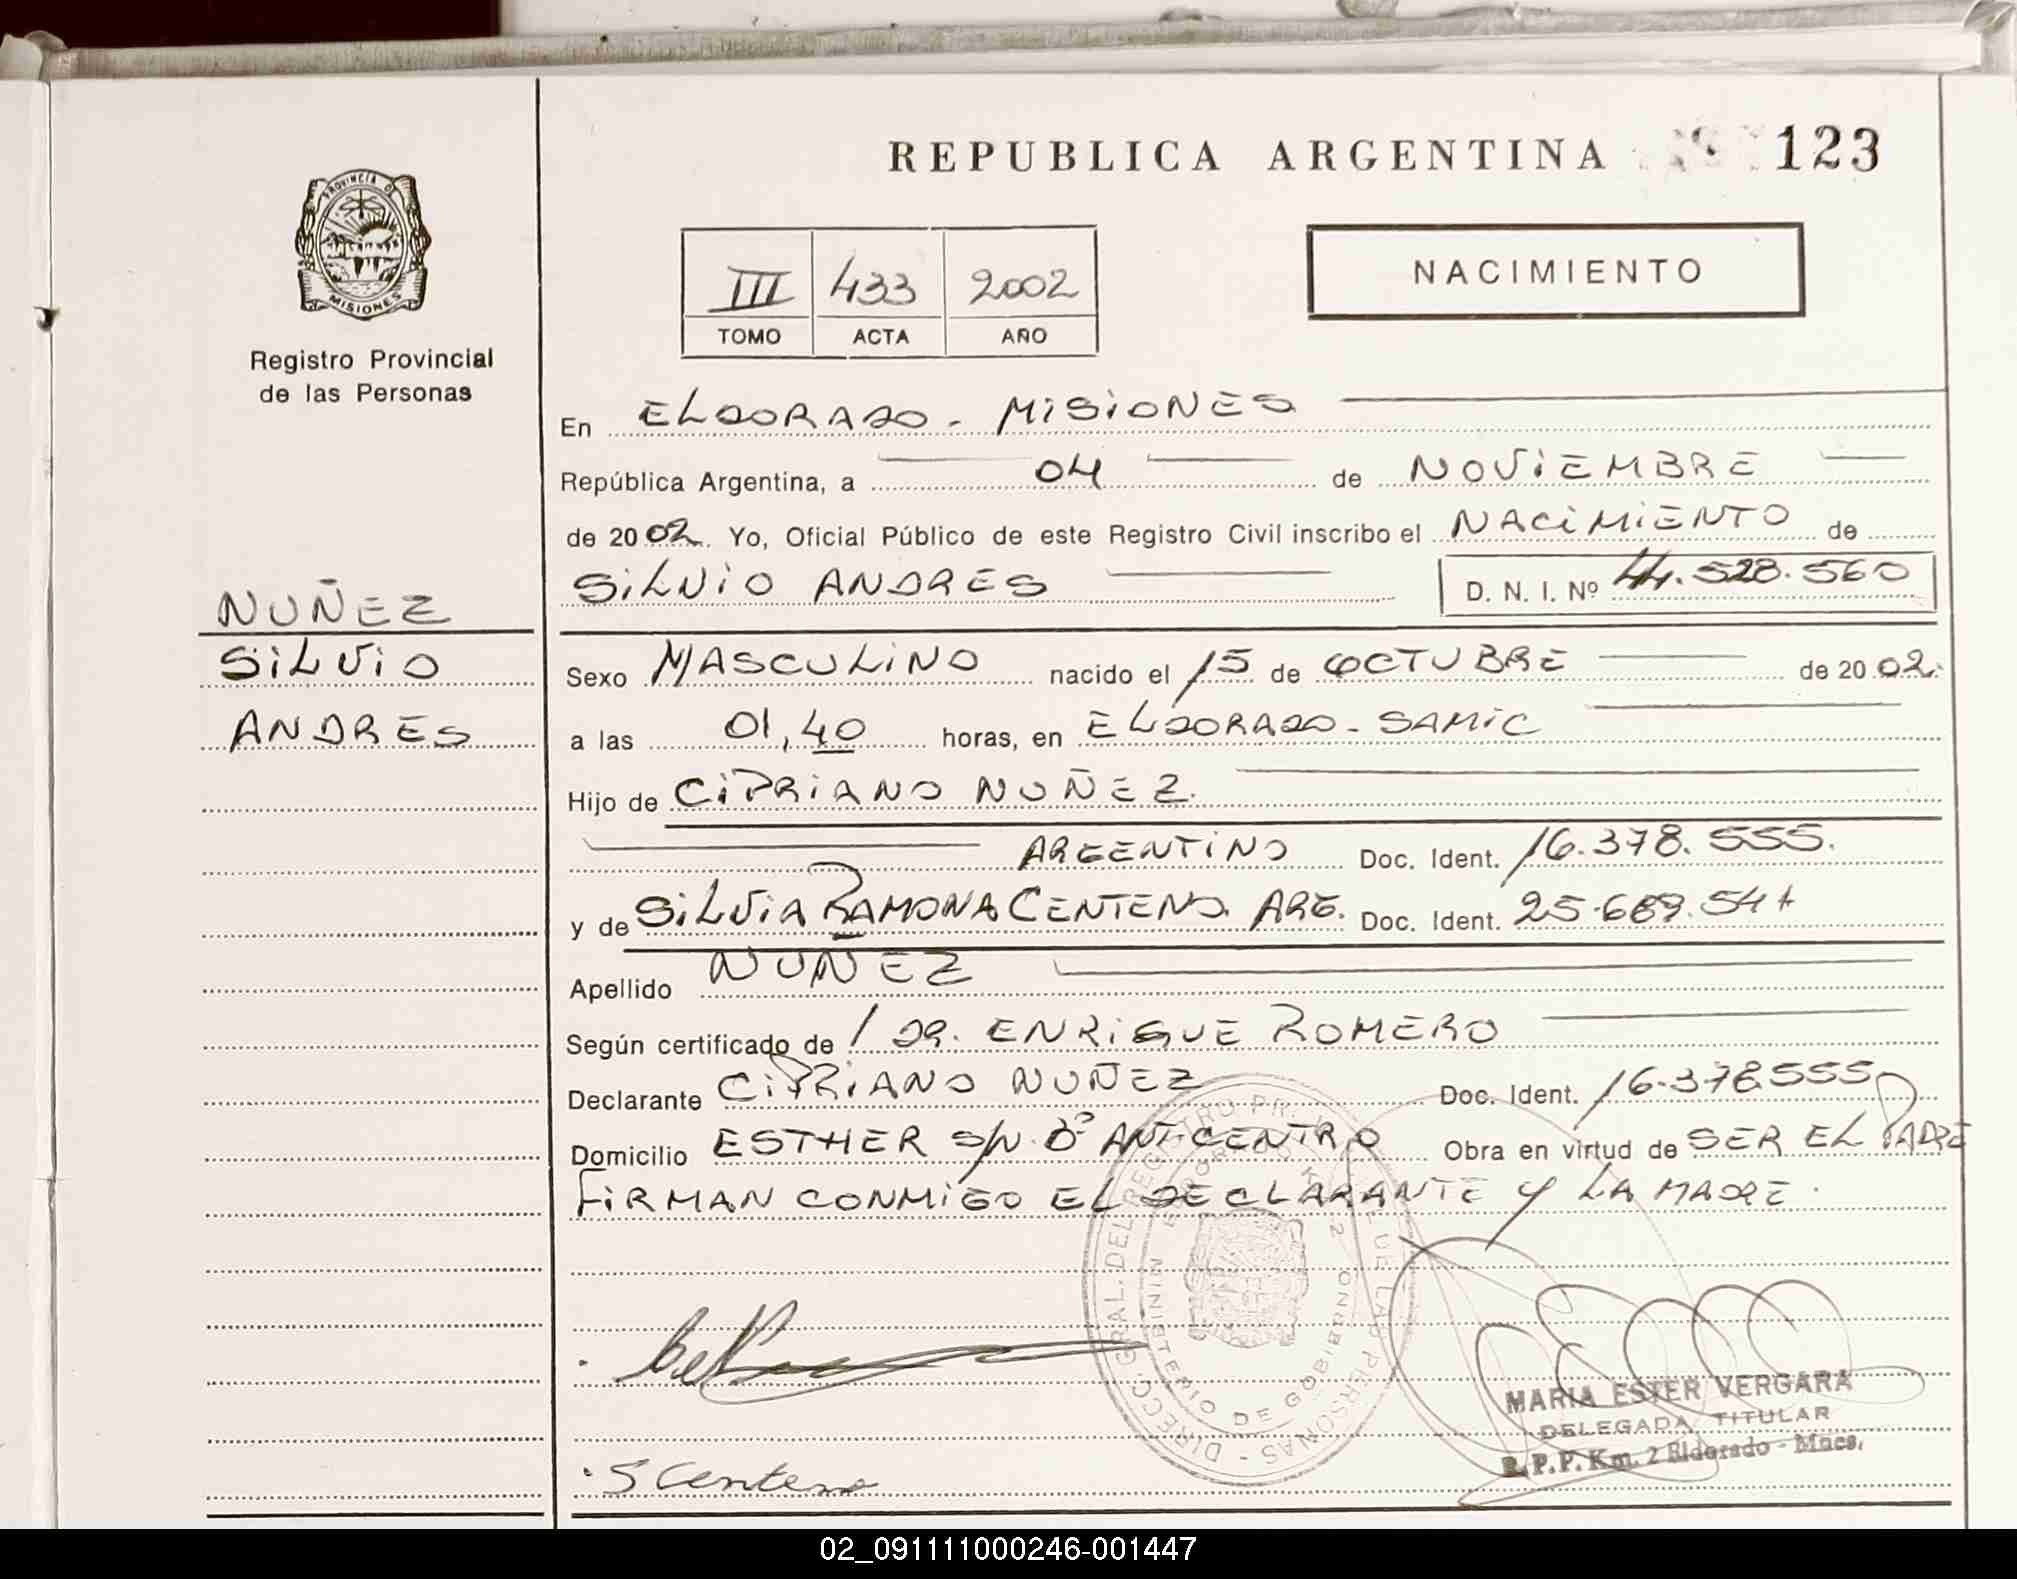 REPUBLICA ARGENTINA 123
PROVINCIA DE
MISIONES
Registro Provincial
de las Personas
NUÑEZ
SILVIO
ANDRES
III 433 2002
TOMO ACTA AÑO
NACIMIENTO
En ELDORADO - MISIONES
República Argentina, a 04 de NOVIEMBRE
de 2002. Yo, Oficial Público de este Registro Civil inscribo el NACIMIENTO de
SILVIO ANDRES D. N. I. Nº 44.528.560
Sexo MASCULINO nacido el 15 de OCTUBRE de 2002.
a las 01,40 horas, en ELDORADO - SAMIC
Hijo de CIPRIANO NUÑEZ.
ARGENTINO Doc. Ident. 16.378.555.
y de SILVIA RAMONA CENTENO. ARG. Doc. Ident.
Apellido NUÑEZ
Según certificado de DR. ENRIQUE ROMERO
Declarante CIPRIANO NUÑEZ Doc. Ident. 16.378.555
Domicilio ESTHER S/N. Bº ANT. CENTRO Obra en virtud de SER EL PADRE
FIRMAN CONMIGO EL DECLARANTE Y LA MADRE.
S Centeno
MARIA ESTER VERGARA
DELEGADA TITULAR
R.P.P. Km. 2 Eldorado - Mnes.
02_091111000246-001447